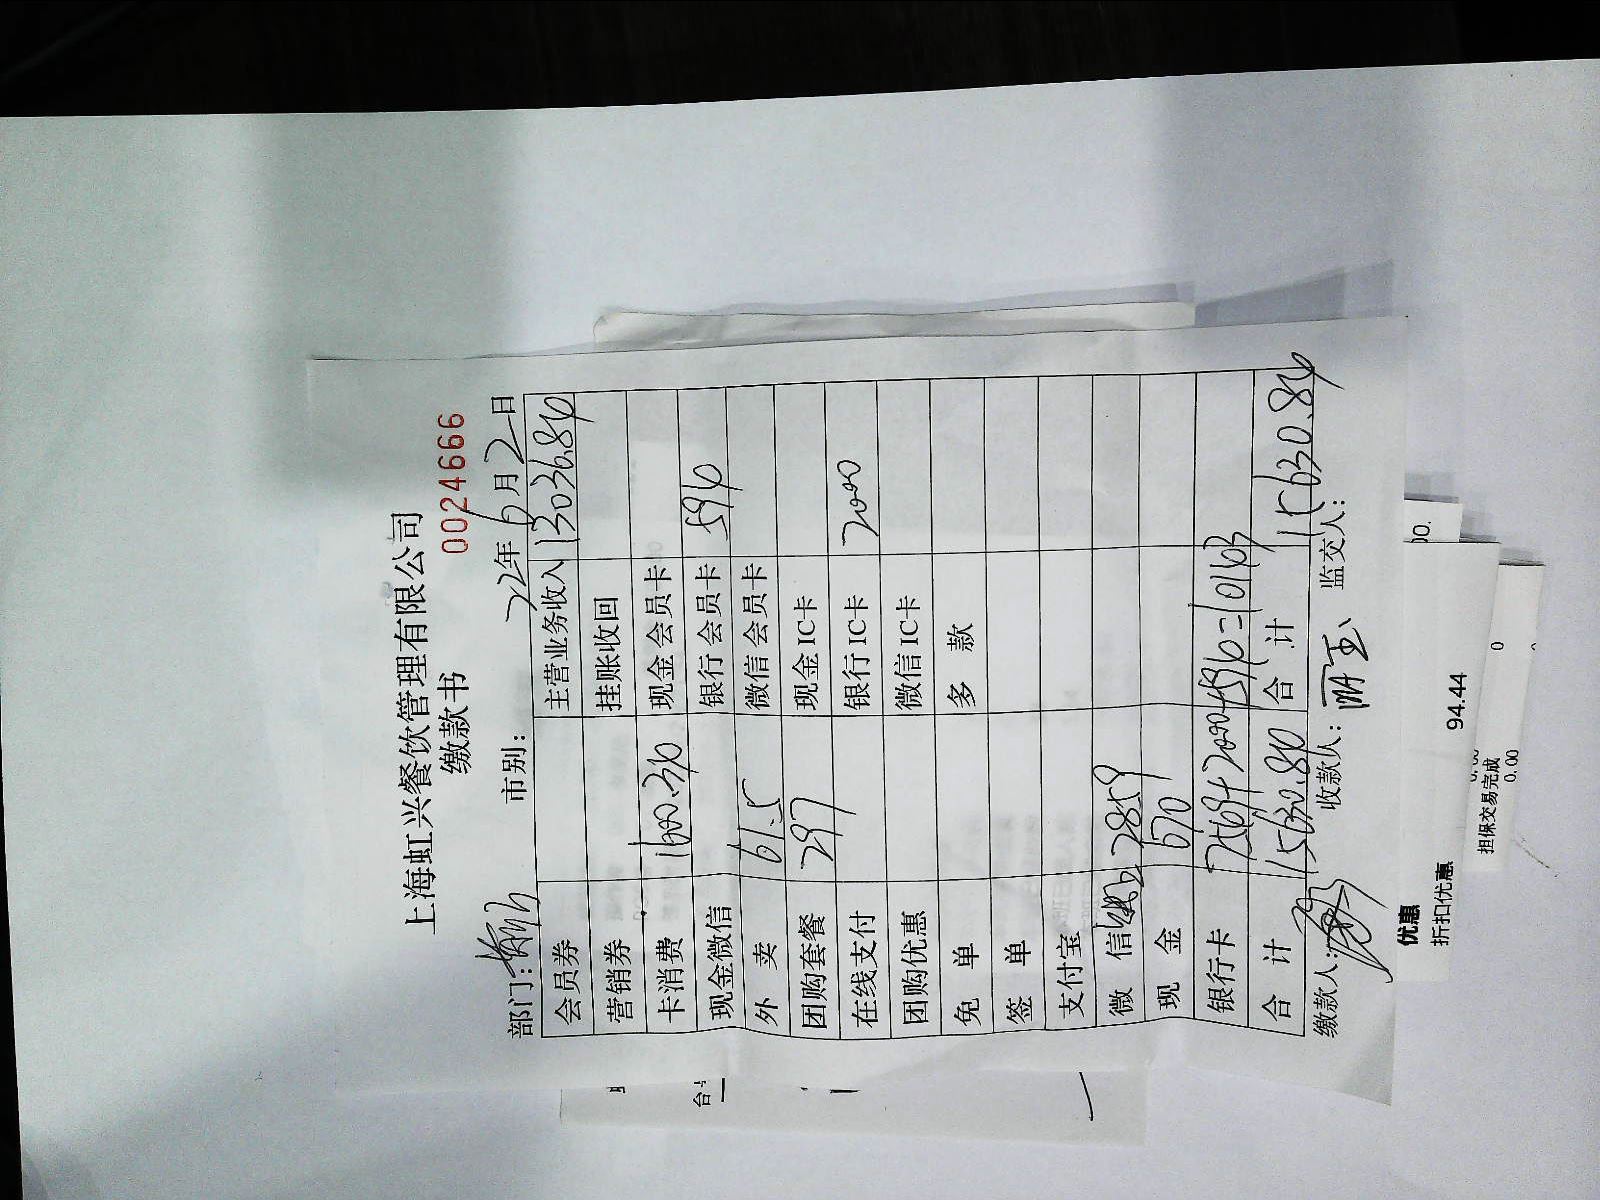 上海虹兴餐饮管理有限公司
缴款书
0024666
部门: 市别: 22年6月2日
会员券 主营业务收入 13036.84
营销券 挂账收回
卡消费 1600.34 现金会员卡
现金微信 银行会员卡 594
外卖 61.5 微信会员卡
团购套餐 297 现金IC卡
在线支付 银行IC卡 2000
团购优惠 微信IC卡
免单 多款
签单
支付宝
微信 2859
现金 650
银行卡 7569+2000+594=10163
合计 15630.84 合计 15630.84
缴款人: 收款人: 监交人:
优惠
折扣优惠 94.44
00.
0.00
担保交易完成 0
0.00
台